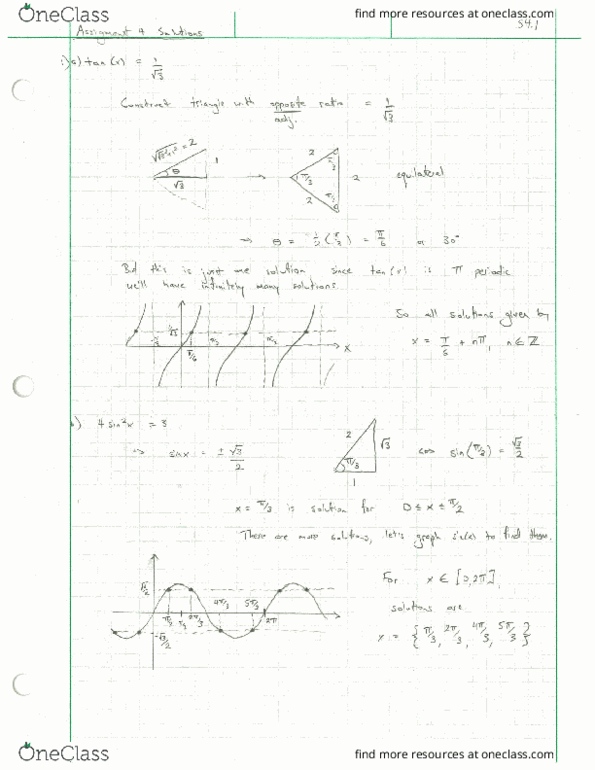 OneClass
find more resources at oneclass.com
Assignment 4 Solutions
54.1
1) a) tan(x) = 1/√3
Construct triangle with opposite/adj. ratio = 1/√3
√(√3²+1²) = 2
1
θ
√3
→
2
π/3
π/3
π/3
2
2
equilateral
⇒ θ = 1/2 (π/3) = π/6 or 30°
But this is just one solution since tan(x) is π periodic
we'll have infinitely many solutions.
1/√3
π/6
x
So all solutions given by
x = π/6 + nπ, n ∈ ℤ
b) 4 sin²x = 3
⇒ sinx = ± √3/2
2
√3
π/3
1
sin(π/3) = √3/2
x = π/3 is solution for 0 ≤ x ≤ π/2
There are more solutions, let's graph sin(x) to find them.
√3/2
-√3/2
2π/3
4π/3
5π/3
2π
For x ∈ [0,2π]
solutions are
x = {π/3, 2π/3, 4π/3, 5π/3}
OneClass
find more resources at oneclass.com